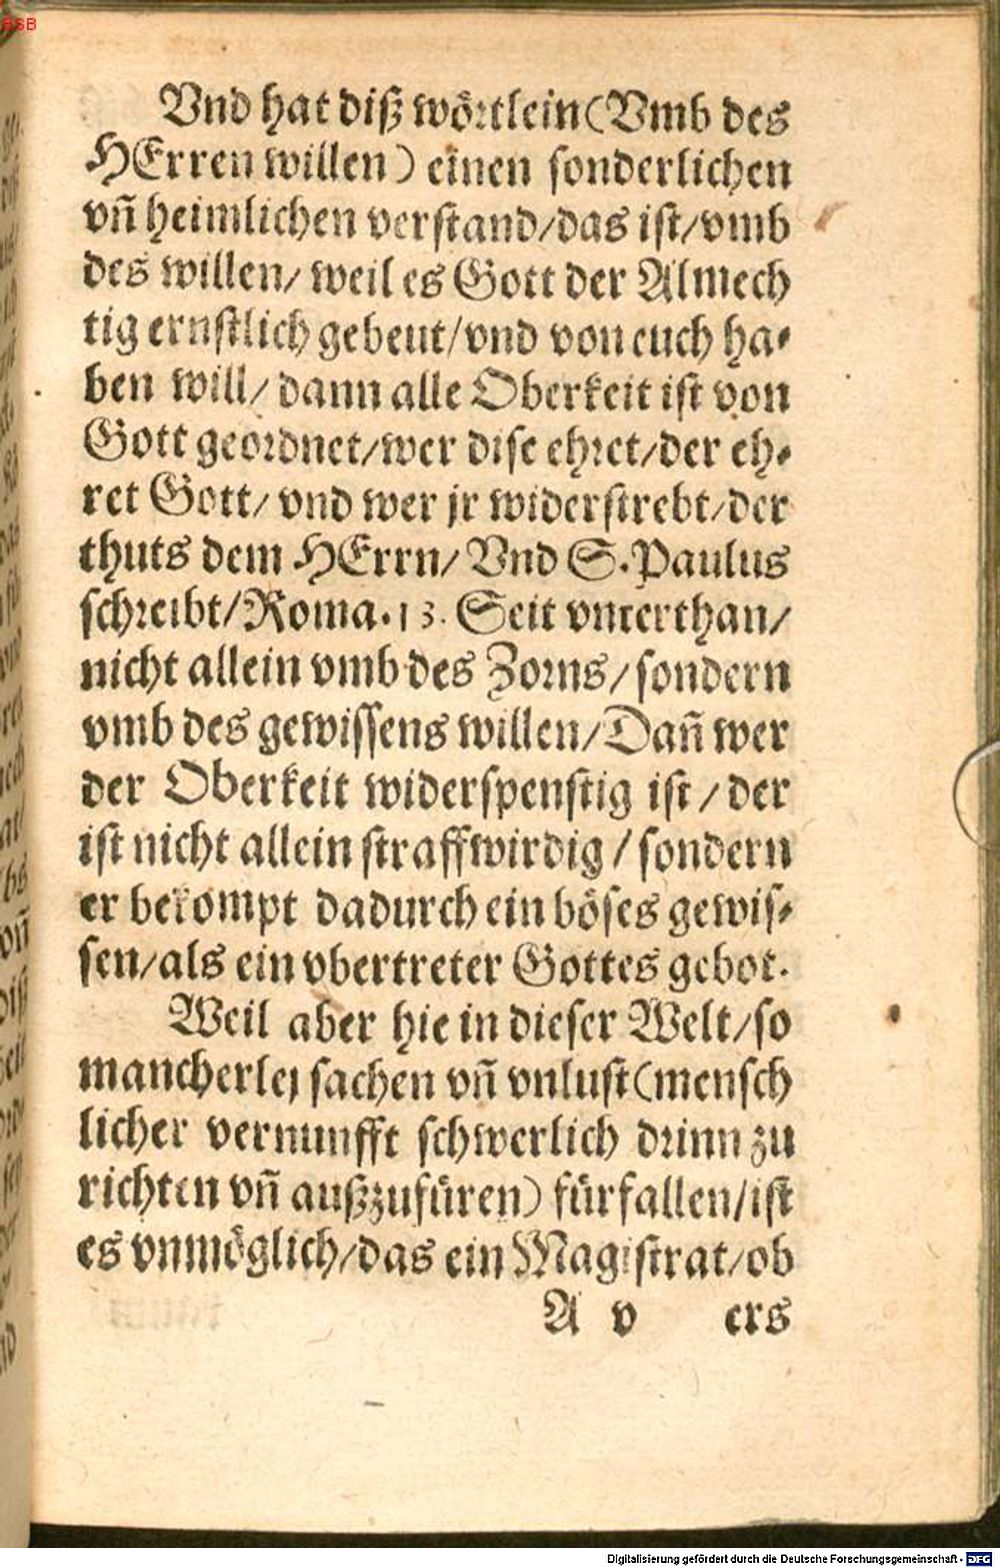 BSB
Vnd hat diß wörtlein (Vmb des
HErren willen) einen sonderlichen
vñ heimlichen verstand/das ist/vmb
des willen/ weil es Gott der Almech
tig ernstlich gebeut/vnd von euch ha-
ben will/ dann alle Oberkeit ist von
Gott geordnet/wer dise ehret/der eh-
ret Gott/ vnd wer jr widerstrebt/der
thuts dem HErrn/ Vnd S. Paulus
schreibt/Roma. 13. Seit vnterthan/
nicht allein vmb des Zorns/sondern
vmb des gewissens willen/Dañ wer
der Oberkeit widerspenstig ist/der
ist nicht allein straffwirdig/sondern
er bekompt dadurch ein böses gewis-
sen/als ein vbertreter Gottes gebot.
Weil aber hie in dieser Welt/so
mancherlej sachen vñ vnlust (mensch
licher vernunfft schwerlich drinn zu
richten vñ außzufüren) fürfallen/ist
es vnmöglich/das ein Magistrat/ob
A v ers
Digitalisierung gefördert durch die Deutsche Forschungsgemeinschaft - DFG